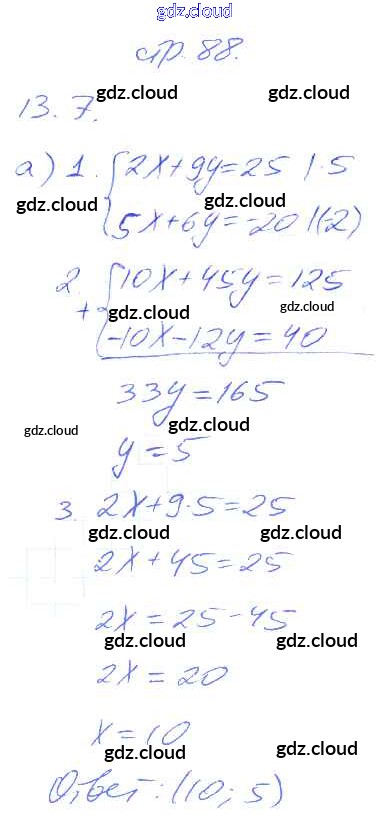 gdz.cloud
стр. 88.
gdz.cloud gdz.cloud
13.7.
а) 1. { 2x+9y=25 |·5
gdz.cloud gdz.cloud
5x+6y=-20 |(-2)
2. { 10x+45y=125
+ gdz.cloud gdz.cloud
-10x-12y=40
33y=165
gdz.cloud gdz.cloud
y=5
3. 2x+9·5=25
gdz.cloud gdz.cloud
2x+45=25
2x=25-45
gdz.cloud gdz.cloud
2x=20
x=10
gdz.cloud gdz.cloud
Ответ: (10; 5)